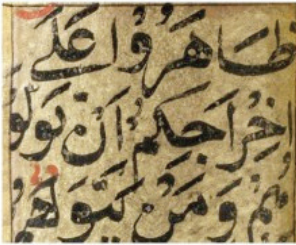 ظَاهَرُوا عَلَى
إِخْرَاجِكُمْ أَنْ تَوَلَّوْ
هُمْ وَمَنْ يَتَوَلَّهُمْ